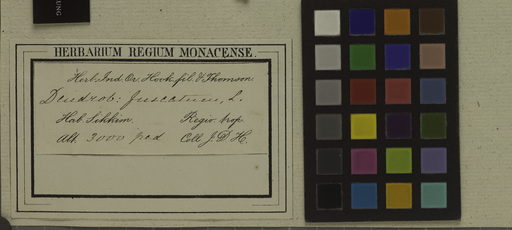 UNG
HERBARIUM REGIUM MONACENSE.
Herb. Ind. Or. Hook fil. & Thomson.
Dendrob: fuscatum, L.
Hab. Sikkim. Regio. trop.
Alt. 3000 ped Coll. J. D. H.